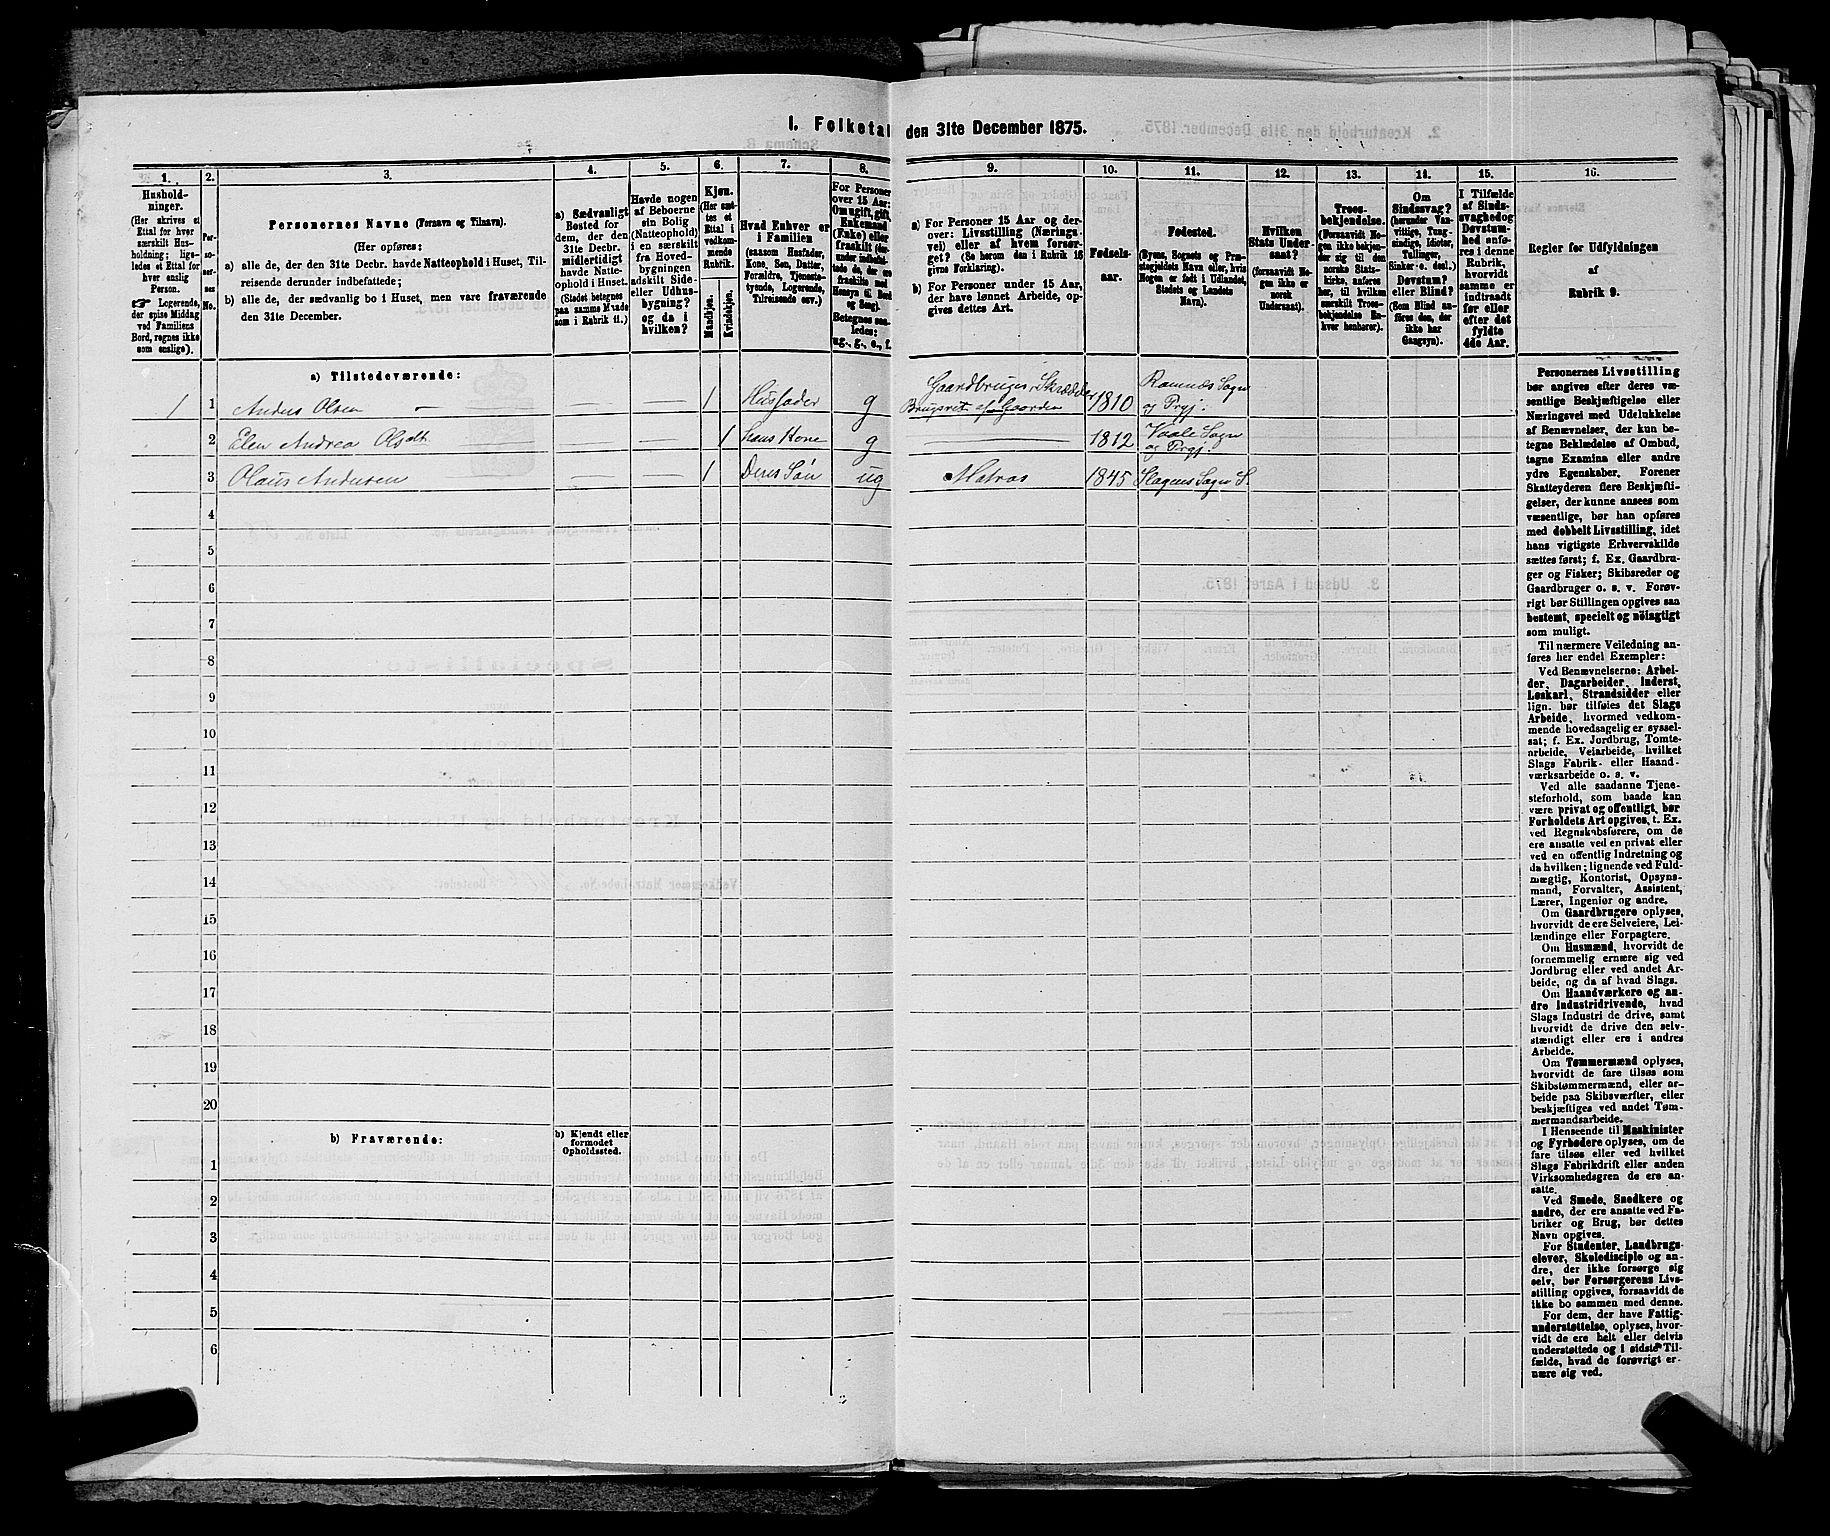 I. Folketal den 31te December 1875.
1.
Hushold-
ninger.
(Her skrives et
Ettal for hver
særskilt Hus-
holdning; lige-
ledes et Ettal for
hver enslig
Person.
☞ Logerende,
der spise Middag
ved Familiens
Bord, regnes ikke
som enslige).
2.
Per-
so-
ner-
nes
No.
3.
Personernes Navne (Fornavn og Tilnavn).
(Her opføres:
a) alle de, der den 31te Decbr. havde Natteophold i Huset, Til-
reisende derunder indbefattede;
b) alle de, der sædvanlig bo i Huset, men vare fraværende
den 31te December.
4.
a) Sædvanligt
Bosted for
dem, der den
31te Decbr.
midlertidigt
havde Natte-
ophold i Huset.
(Stedet betegnes
paa samme Maade
som i Rubrik 11.)
5.
Havde nogen
af Beboerne
sin Bolig
(Natteophold)
i en særskilt
fra Hoved-
bygningen
adskilt Side-
eller Udhus-
bygning?
og da i
hvilken?
6.
Kjøn.
(Her sæt-
tes et
Ettal i
vedkom-
mende
Rubrik.
Mandkjøn.
Kvindekjøn.
7.
Hvad Enhver er
i Familien
(saasom Husfader,
Kone, Søn, Datter,
Forældre, Tjeneste-
tyende, Logerende,
Tilreisende osv.)
8.
For Personer
over 15 Aar:
Om ugift, gift,
Enkemand
(Enke) eller
fraskilt
Betegnes saa-
ledes:
ug., g., e., f.
9.
a) For Personer 15 Aar og der-
over: Livsstilling (Nærings-
vei) eller af hvem forsør-
get? (Se herom den i Rubrik 16
givne Forklaring).
b) For Personer under 15 Aar,
der have lønnet Arbeide, op-
gives dettes Art.
10.
Fødsels-
aar.
11.
Fødested.
(Byens, Sognets og Præ-
stegjeldets Navn eller, hvis
Nogen er født i Udlandet,
Stedets og Landets
Navn).
12.
Hvilken
Stats Under-
saat?
(forsaavidt No-
gen ikke er
norsk
Undersaat).
13.
Troes-
bekjendelse.
(Forsaavidt No-
gen ikke bekjen-
der sig til den
norske Stats-
kirke, anføres
her, til hvilken
særskilt Troes-
bekjendelse En-
hver henhører).
14.
Om
Sindssvag?
(herunder Van-
vittige, Tung-
sindige, Idioter,
Tullinger,
Sinker o. desl.)
Døvstum?
eller Blind?
(Som Blind an-
føres den, der
ikke har
Gangsyn).
15.
I Tilfælde
af Sinds-
svaghed og
Døvstum-
hed anfø-
res i denne
Rubrik,
hvorvidt
samme er
indtraadt
før eller
efter det
fyldte
4de Aar.
16.
Regler for Udfyldningen
af
Rubrik 9.
a) Tilstedeværende:
1 1 Anders Olsen — — — 1 Husfader g Gaardbruger, Skrædder
Brugsret af Gaarden 1810 Ramnæs Sogn
og Prgj:
2 Elen Andrea Olsdt. — — 1 hans Kone g — 1812 Vaale Sogn
og Prgj.
3 Olaus Andersen — — 1 Deres Søn ug Matros 1845 Slagens Sogn S.
4
5
6
7
8
9
10
11
12
13
14
15
16
17
18
19
20
b) Fraværende:
b) Kjendt eller
formodet
Opholdssted.
1
2
3
4
5
6
Personernes Livsstilling
bør angives efter deres væ-
sentlige Beskjæftigelse eller
Næringsvei med Udelukkelse
af Benævnelser, der kun be-
tegne Beklædelse af Ombud,
tagne Examina eller andre
ydre Egenskaber. Forener
Skatteyderen flere Beskjæfti-
gelser, der kunne ansees som
væsentlige, bør han opføres
med dobbelt Livsstilling, idet
hans vigtigste Erhvervskilde
sættes først; f. Ex. Gaardbru-
ger og Fisker; Skibsreder og
Gaardbruger o. s. v. Forøv-
rigt bør Stillingen opgives saa
bestemt, specielt og nøiagtigt
som muligt.
Til nærmere Veiledning an-
føres her endel Exempler:
Ved Benævnelserne: Arbei-
der, Dagarbeider, Inderst,
Løskarl, Strandsidder eller
lign. bør tilføies det Slags
Arbeide, hvormed vedkom-
mende hovedsagelig er syssel-
sat; f. Ex. Jordbrug, Tomte-
arbeide, Veiarbeide, hvilket
Slags Fabrik- eller Haand-
værksarbeide o. s. v.
Ved alle saadanne Tjene-
steforhold, som baade kan
være privat og offentligt, bør
Forholdets Art opgives, t. Ex.
ved Regnskabsførere, om de
ere ansatte ved en privat eller
ved en offentlig Indretning og
da hvilken; lignende ved Fuld-
mægtig, Kontorist, Opsyns-
mand, Forvalter, Assistent,
Lærer, Ingeniør og andre.
Om Gaardbrugere oplyses,
hvorvidt de ere Selveiere, Lei-
lændinge eller Forpagtere.
Om Husmænd, hvorvidt de
fornemmelig ernære sig ved
Jordbrug eller ved andet Ar-
beide, og da af hvad Slags.
Om Haandværkere og an-
dre Industridrivende, hvad
Slags Industri de drive, samt
hvorvidt de drive den selv-
stændigt eller ere i andres
Arbeide.
Om Tømmermænd oplyses,
hvorvidt de fare tilsøs som
Skibstømmermænd, eller ar-
beide paa Skibsværfter, eller
beskjæftiges ved andet Tøm-
mermandsarbeide.
I Henseende til Maskinister
og Fyrbødere oplyses, om de
fare tilsøs eller ved hvilket
Slags Fabrikdrift eller anden
Virksomhedsgren de ere an-
satte.
Ved Smede, Snedkere og
andre, der ere ansatte ved Fa-
briker og Brug, bør dettes
Navn opgives.
For Studenter, Landbrugs-
elever, Skoledisciple og an-
dre, der ikke forsørge sig
selv, bør Forsørgerens Livs-
stilling opgives, forsaavidt de
ikke bo sammen med denne.
For dem, der have Fattig-
understøttelse, oplyses, hvor-
vidt de ere helt eller delvis
understøttede og i sidste Til-
fælde, hvad de forøvrigt er-
nære sig ved.